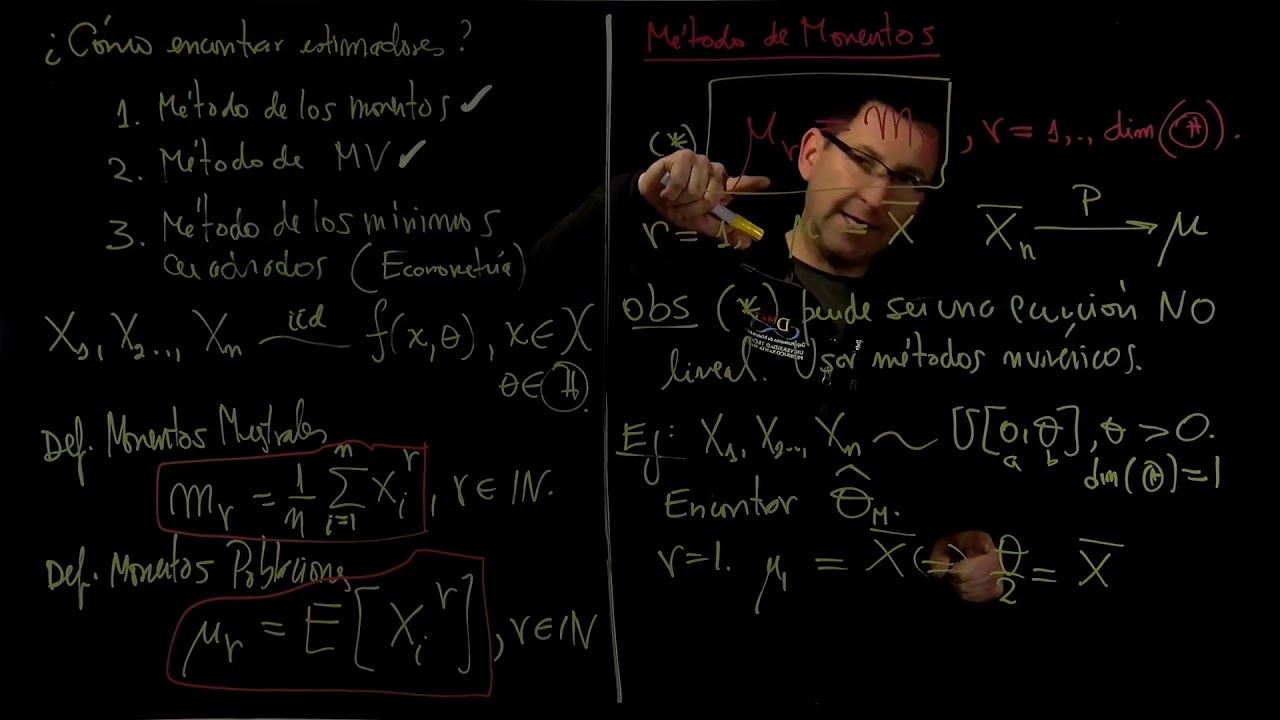 ¿Cómo encontrar estimadores?
1. Método de los momentos ✓
2. Método de MV ✓
3. Método de los mínimos
cuadrados (Econometría)
X₁, X₂..., Xₙ iid f(x,θ), x∈X
θ∈Ⓗ.
Def. Momentos Muestrales
mᵣ = 1/n Σⁿᵢ₌₁ Xᵢʳ, r∈IN.
Def. Momentos Poblaciones
μᵣ = E[Xᵢʳ], r∈IN
Método de Momentos
(*) μᵣ = m , r = 1,.., dim(Ⓗ).
r = 1, μ = X̅ X̅ₙ P→ μ
Obs (*) puede ser una ecuación NO
lineal. Usar métodos numéricos.
Ej: X₁, X₂..., Xₙ ~ U[0,θ], θ > 0.
a b dim(Ⓗ)=1
Encontrar θ̂_M.
r=1. μ₁ = X̅ (=) θ/2 = X̅